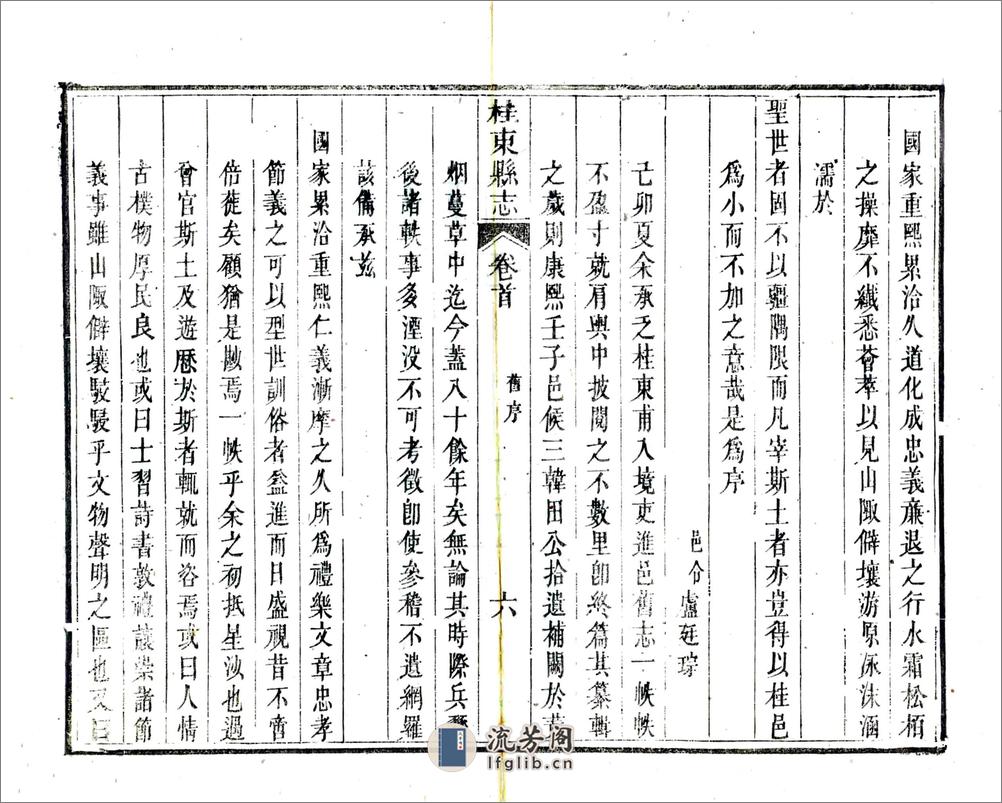 國家重熙累洽久道化成忠義廉退之行水霜松栢
之操靡不纖悉薈萃以見山陬僻壤游原泳沫涵
濡於
聖世者固不以疆隅限而凡宰斯土者亦豈得以桂邑
為小而不加之意哉是為序
邑令盧廷琮
己卯夏余承乏桂東甫入境吏進邑舊志一帙帙
不盈寸就肩輿中披閱之不數里卽終篇其纂輯
之歲則康熙壬子邑候三韓田公拾遺補闕於
桂東縣志
卷首
舊序
六
烟蔓草中迄今蓋八十餘年矣無論其時際兵
後諸軼事多湮没不可考徵卽使參稽不遺網羅
該備承茲
國家累洽重熙仁義漸摩之久所為禮樂文章忠孝
節義之可以型世訓俗者蒸進而日盛視昔不啻
倍蓰矣顧猶是戔焉一帙乎余之初抵星沙也過
會官斯土及遊歷於斯者輒就而咨焉或曰人情
古樸物厚民良也或曰士習詩書敦禮讓崇諸節
義事雖山陬僻壤駸駸乎文物聲明之區也又曰
流芳阁
lfglib.cn